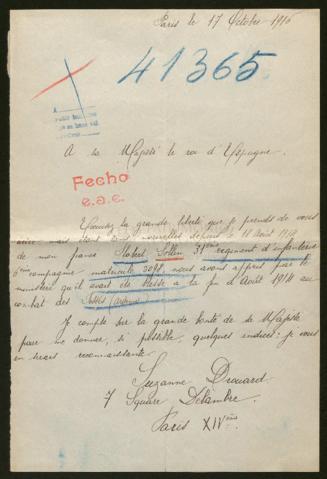 Paris le 17 Octobre 1916
41365
A sa Majesté le roi d'Espagne.
Fecho
e.a.e.
Excusez la grande liberté que je prends de vous
nouvelles depuis le 18 Août 1914
de mon fiancé Robert 31ème régiment d'infanterie
6ème compagnie matricule 3098, nous avons appris par le
ministère qu'il avait été blessé à la fin d'Août 1914 au
combat des
Je compte sur la grande bonté de sa Majesté
pour me donner, si possible, quelques indices; je vous
en serais reconnaissante.
Suzanne Drouard
7 Square Delambre.
Paris XIVème